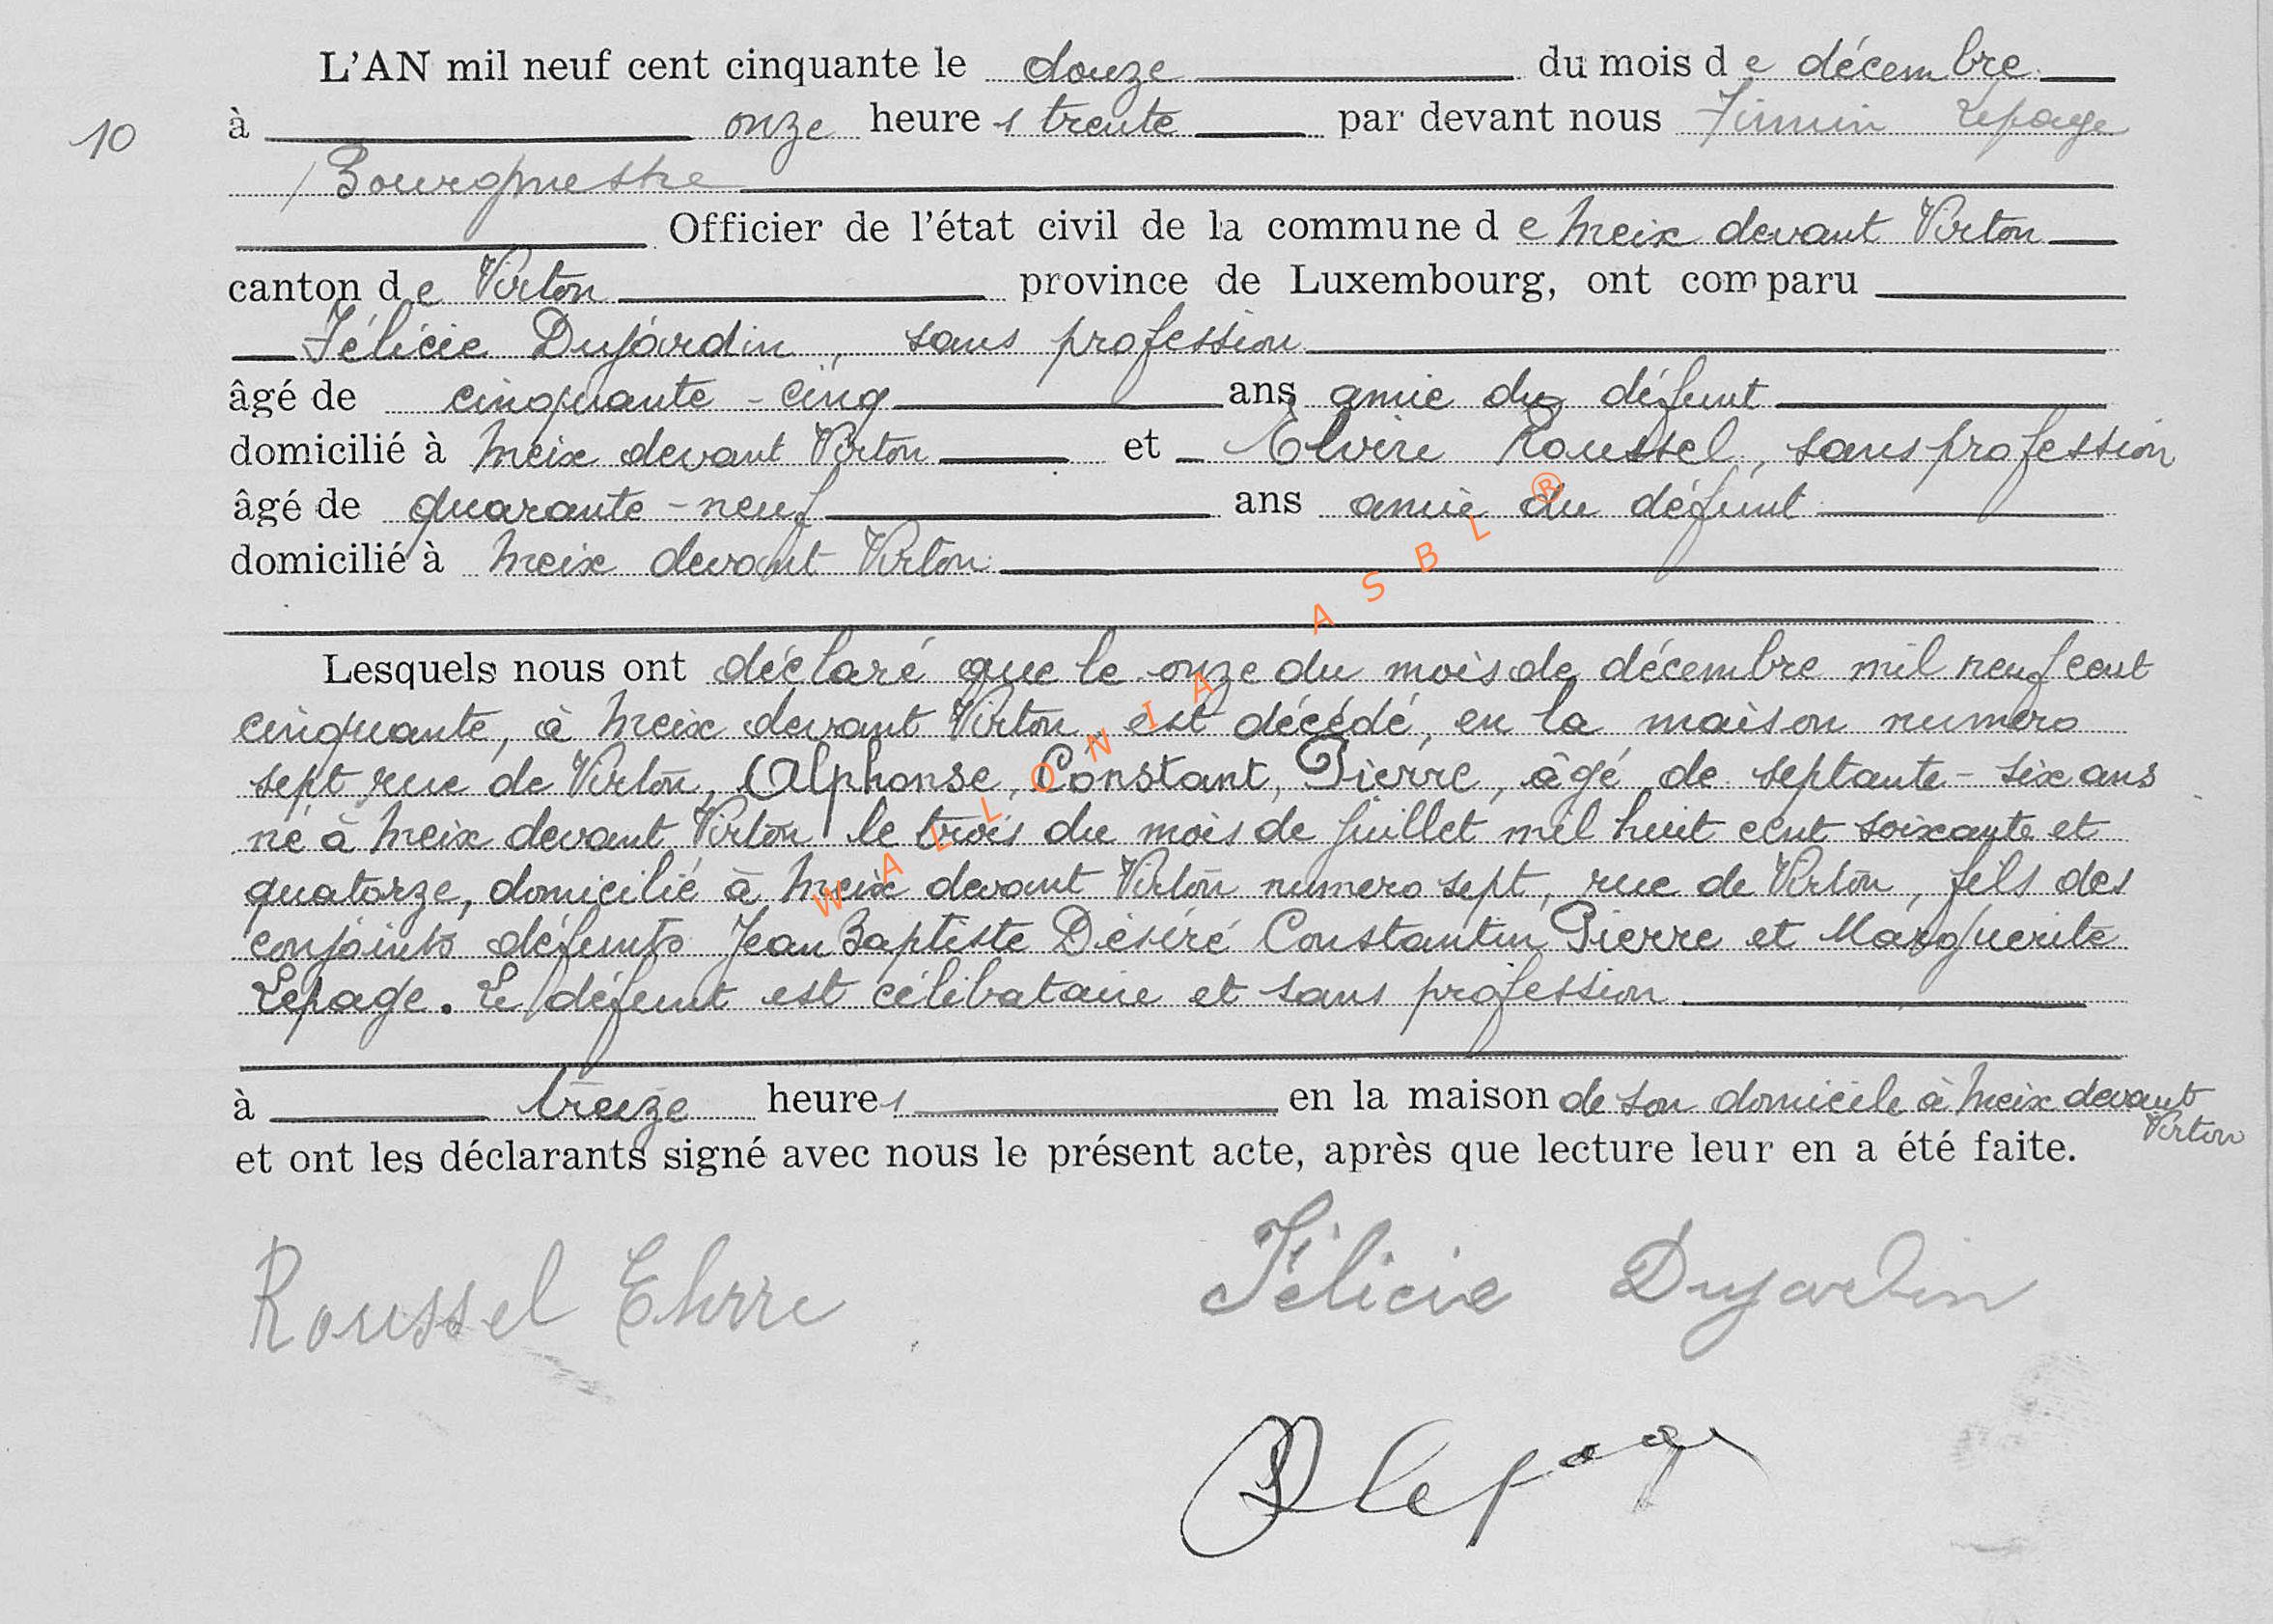 L'AN mil neuf cent cinquante le douze du mois de décembre
10
à onze heures trente par devant nous Firmin Lepage
Bourgmestre
Officier de l'état civil de la commune de Meix devant Virton
canton de Virton province de Luxembourg, ont comparu
Félicie Dujardin, sans profession
âgé de cinquante-cinq ans amie du défunt
domicilié à Meix devant Virton et Elvire Roussel, sans profession
âgé de quarante-neuf ans amie du défunt
domicilié à Meix devant Virton
Lesquels nous ont déclaré que le onze du mois de décembre mil neuf cent
cinquante, à Meix devant Virton est décédé, en la maison numero
sept rue de Virton, Alphonse, Constant, Pierre, âgé de septante-six ans
né à Meix devant Virton le trois du mois de juillet mil huit cent soixante et
quatorze, domicilié à Meix devant Virton numero sept, rue de Virton, fils des
conjoints défunts Jean Baptiste Désiré Constantin Pierre et Marguerite
Lepage. Le défunt est célibataire et sans profession
à treize heures en la maison de son domicile à Meix devant
Virton
et ont les déclarants signé avec nous le présent acte, après que lecture leur en a été faite.
Roussel Elvire Félicie Dujardin
Lepage
WALLONIA ASBL ®